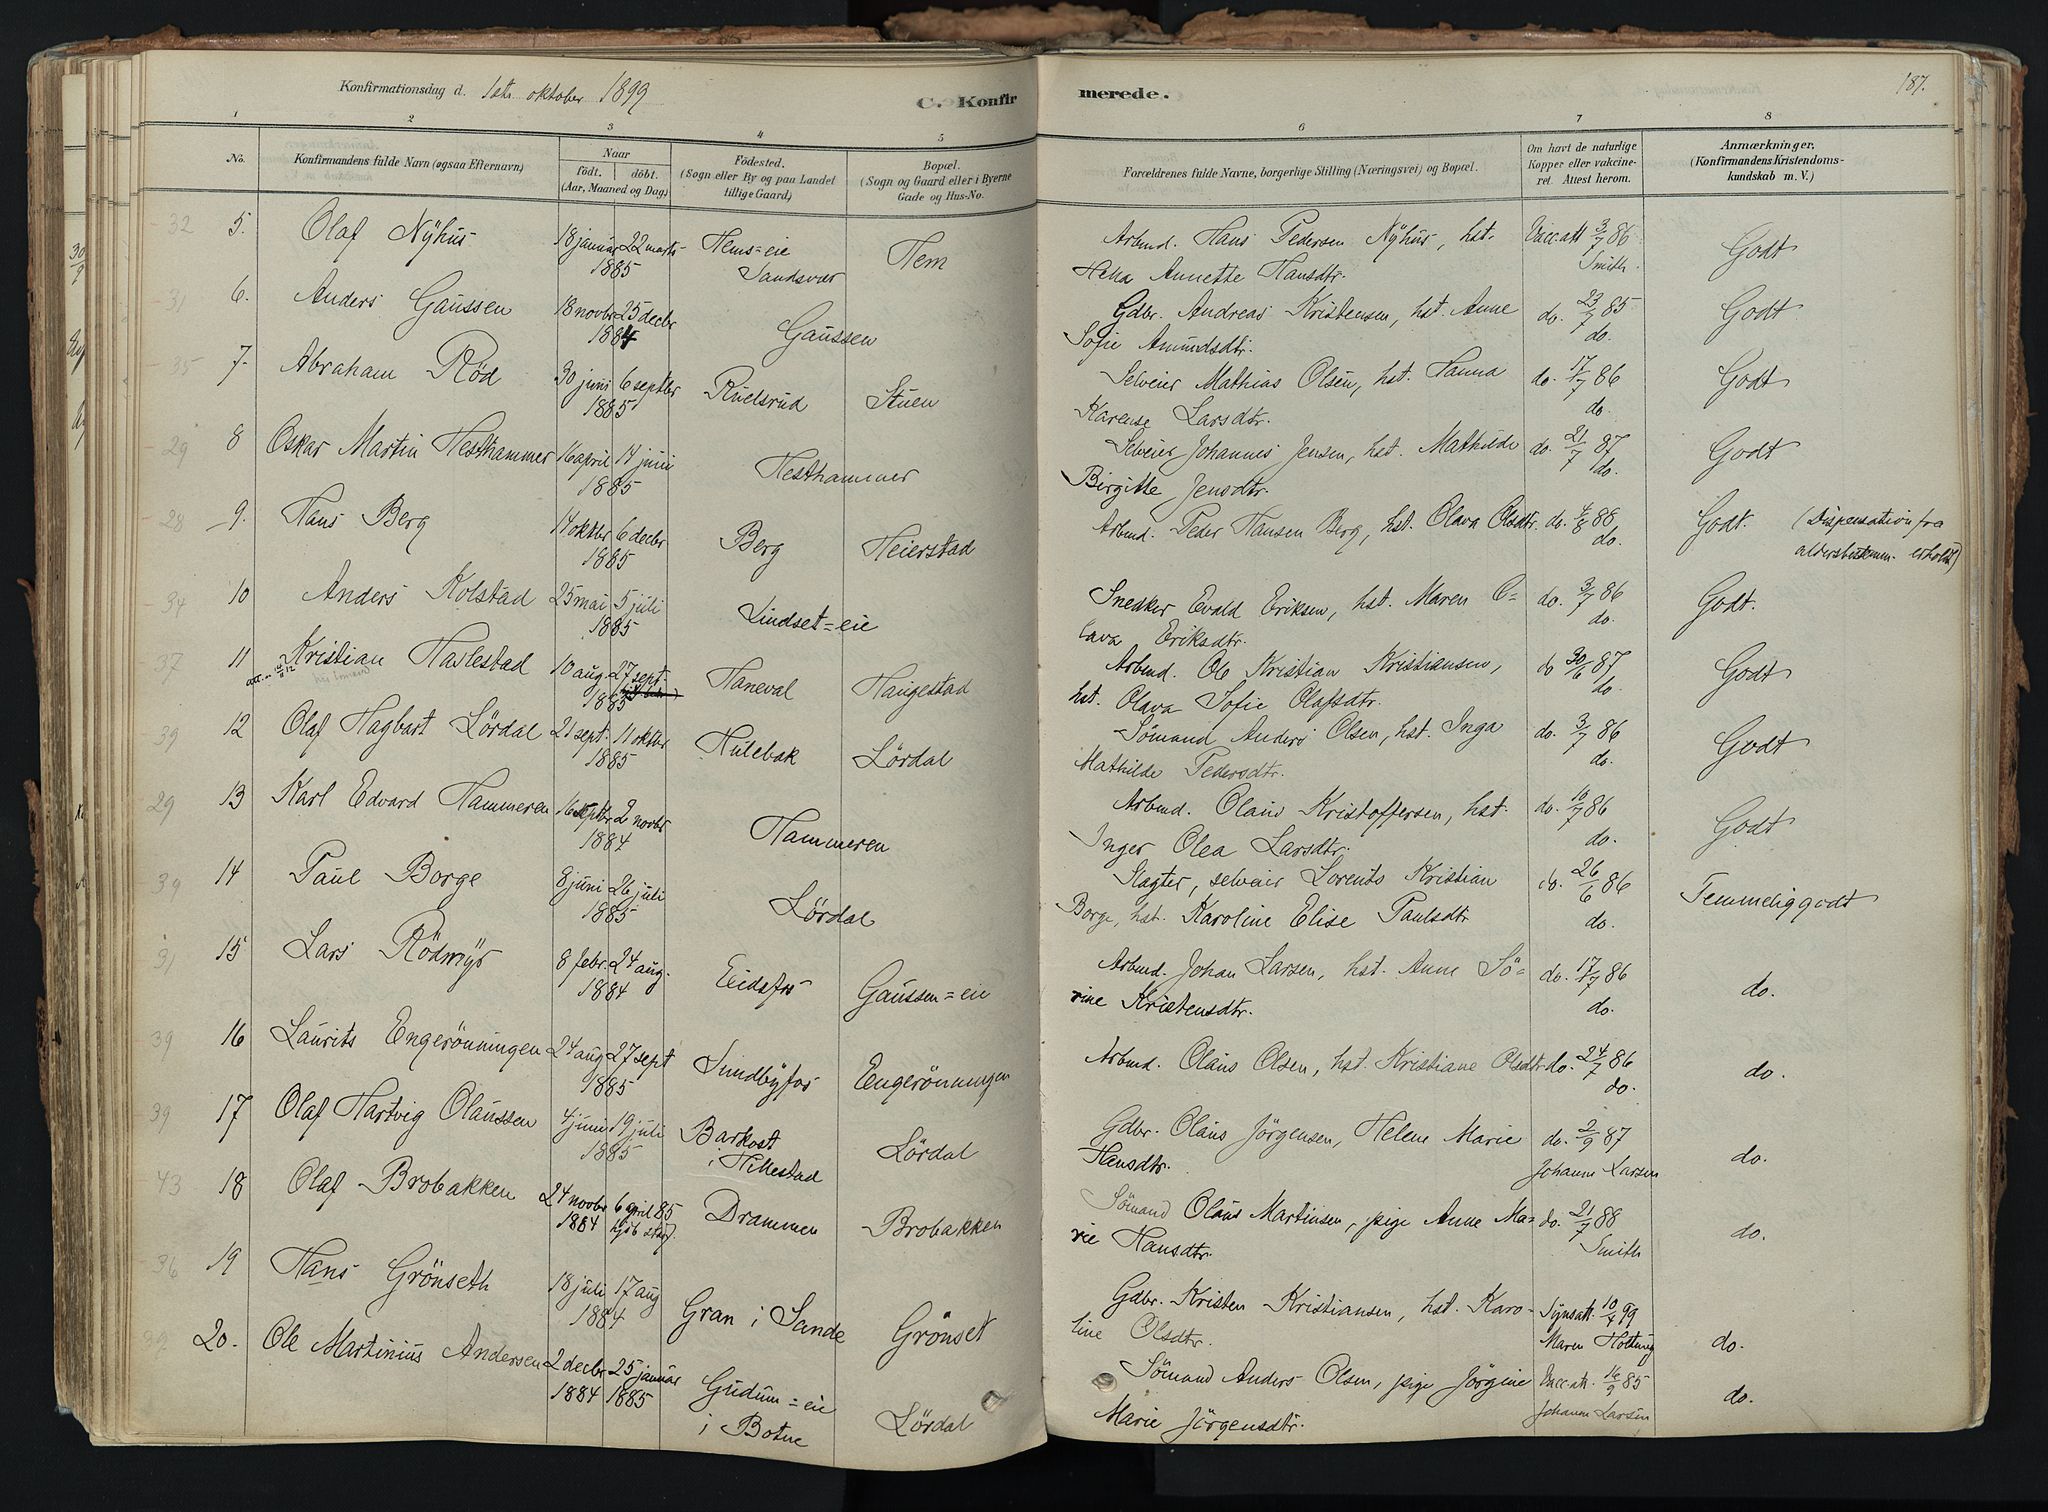 Konfirmationsdag d. 1ste oktober 1899
C. Konfirmerede.
187.
1 2 3 4 5 6 7 8
No.
Konfirmandens fulde Navn (ogsaa Efternavn)
Naar
født. døbt.
(Aar, Maaned og Dag)
Fødested.
(Sogn eller By og paa Landet
tillige Gaard)
Bopæl.
(Sogn og Gaard eller i Byerne
Gade og Hus-No.
Forældrenes fulde Navne, borgerlige Stilling (Næringsvei) og Bopæl.
Om havt de naturlige
Kopper eller vakcine-
ret. Attest herom.
Anmærkninger,
(Konfirmandens Kristendoms-
kundskab m. V.)
32 5. Olaf Nyhus 18 januar 22 marts 1885 Hems=eie Sandsvær Hem
Arbmd. Hans Pedersen Nyhus, hst.
Helia Annette Hansdtr.
Vacc. att 3/7 86 Smith. Godt
31 6. Anders Gaussen 18 novbr 25 decbr 1884 Gaussen
Gdbr. Andreas Kristensen, hst. Anne
Sofie Amundsdtr.
do. 23/7 85 do. Godt
35 7. Abraham Röd 30 juni 6 septbr 1885 Ruelsrud Stuen
Selveier Mathias Olsen, hst. Hanna
Karense Larsdtr.
do. 17/7 86 do. Godt
29 8 Oskar Martin Hesthammer 16 april 14 juni 1885 Hesthammer
Selveier Johannes Jensen, hst. Mathilde
Birgitte Jensdtr.
do. 21/7 87 do. Godt
28 9. Hans Berg 14 oktbr 6 decbr 1885 Berg Heierstad
Arbmd. Peder Hansen Berg, hst. Olava Olsdtr.
do. 4/8 88 do. Godt. (Dispensation fra
aldersbestemm. erholdt)
34 10 Anders Kolstad 25 mai 5 juli 1885 Lindset=eie
Snedker Evald Eriksen, hst. Maren O=
lava Eriksdtr.
do. 3/7 86 do. Godt.
37 11 Kristian Havlestad 10 aug. 27 sept. 1885 Haneval Haugestad
Arbmd. Ole Kristian Kristiansen,
hst. Olava Sofie Olafsdtr.
do 30/6 87 do. Godt
39 12 Olaf Hagbart Lördal 21 sept. 11 oktbr 1885 Hulebak Lördal
Sömand Anders Olsen, hst. Inga
Mathilde Pedersdtr.
do. 3/7 86 do. Godt
29 13 Karl Edvard Hammeren 16 septbr 2 novbr 1884 Hammeren
Arbmd. Olaus Kristoffersen, hst.
Inger Olea Larsdtr.
do. 10/7 86 do. Godt
39 14 Paul Borge 8 juni 26 juli 1885 Lördal
Slagter, selveier Lorents Kristian
Borge, hst. Karoline Elise Paulsdtr
do. 26/6 86 do. Temmelig godt
31 15 Lars Rödmyr 8 febr. 24 aug. 1884 Eidsfos Gaussen=eie
Arbmd. Johan Larsen, hst. Anne Sö=
rine Kristensdtr.
do. 17/7 86 do. do.
39 16 Laurits Engerönningen 24 aug 27 sept 1885 Sundbyfos Engerönningen
Arbmd. Olaus Olsen, hst. Kristiane Olsdtr
do. 24/7 86 do. do.
39 17 Olaf Hartvig Olaussen 4 juni 19 juli 1885 Barkost i Hillestad Lördal
Gdbr. Olaus Jörgensen, Helene Marie
Hansdtr.
do. 2/9 87 Johanne Larsen do.
43 18 Olaf Brobakken 24 novbr 1884 6 april 85 Drammen Brobakken
Sömand Olaus Martinsen, pige Anne Ma=
rie Hansdtr.
do. 21/7 88 Smith do.
36 19 Hans Grönseth 18 juli 17 aug 1884 Gran i Sande Grönset
Gdbr. Kristen Kristiansen, hst. Karo-
line Olsdtr.
Synsatt. 10/4 99 Maren Holtung do.
39 20. Ole Martinius Andersen 2 decbr 1884 25 januar 1885 Gudum=eie i Botne Lördal
Sömand Anders Olsen, pige Jörgine
Marie Jörgensdtr.
Vacc. att. 16/9 85 Johanne Larsen do.